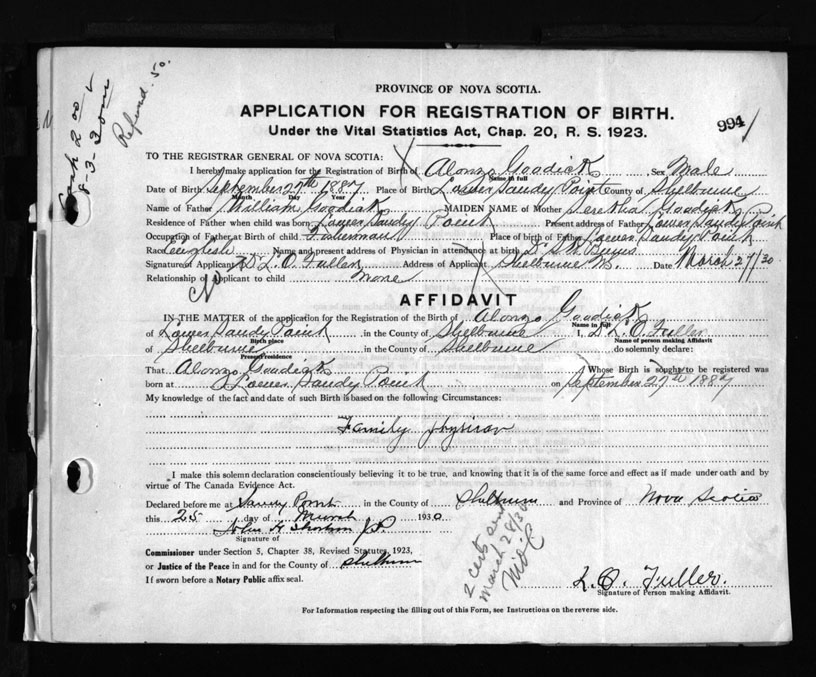 Refund. 50.
PROVINCE OF NOVA SCOTIA.
APPLICATION FOR REGISTRATION OF BIRTH.
Under the Vital Statistics Act, Chap. 20, R. S. 1923.
994
TO THE REGISTRAR GENERAL OF NOVA SCOTIA:
I hereby make application for the Registration of Birth of Alonzo Goodick Sex Male
Name in full
Date of Birth September 27th 1887 Place of Birth Lower Sandy Point County of Shelburne
Month Day Year
Name of Father William Goodick MAIDEN NAME of Mother Goodick
Residence of Father when child was born Lower Sandy Point Present address of Father Lower Sandy Point
Occupation of Father at Birth of child Fisherman Place of birth of Father Lower Sandy Point
Race English Name and present address of Physician in attendance at birth
Signature of Applicant L. O. Fuller Address of Applicant Shelburne N.S. Date March 27/30
Relationship of Applicant to child None
AFFIDAVIT
IN THE MATTER of the application for the Registration of the Birth of Alonzo Goodick
Name in full
of Lower Sandy Point in the County of Shelburne I, L. O. Fuller
Birth place Name of person making Affidavit
of Shelburne in the County of Shelburne do solemnly declare:
Present residence
That Alonzo Goodick Whose Birth is sought to be registered was
born at Lower Sandy Point on September 27th 1887
My knowledge of the fact and date of such Birth is based on the following Circumstances:
Family
I make this solemn declaration conscientiously believing it to be true, and knowing that it is of the same force and effect as if made under oath and by
virtue of The Canada Evidence Act.
Declared before me at Sandy Point in the County of Shelburne and Province of Nova Scotia
this 25 day of March 1930
John
Signature of
Commissioner under Section 5, Chapter 38, Revised Statutes, 1923,
or Justice of the Peace in and for the County of Shelburne
If sworn before a Notary Public affix seal.
2 certs sent
March 28/30
L. O. Fuller.
Signature of Person making Affidavit.
For Information respecting the filling out of this Form, see Instructions on the reverse side.